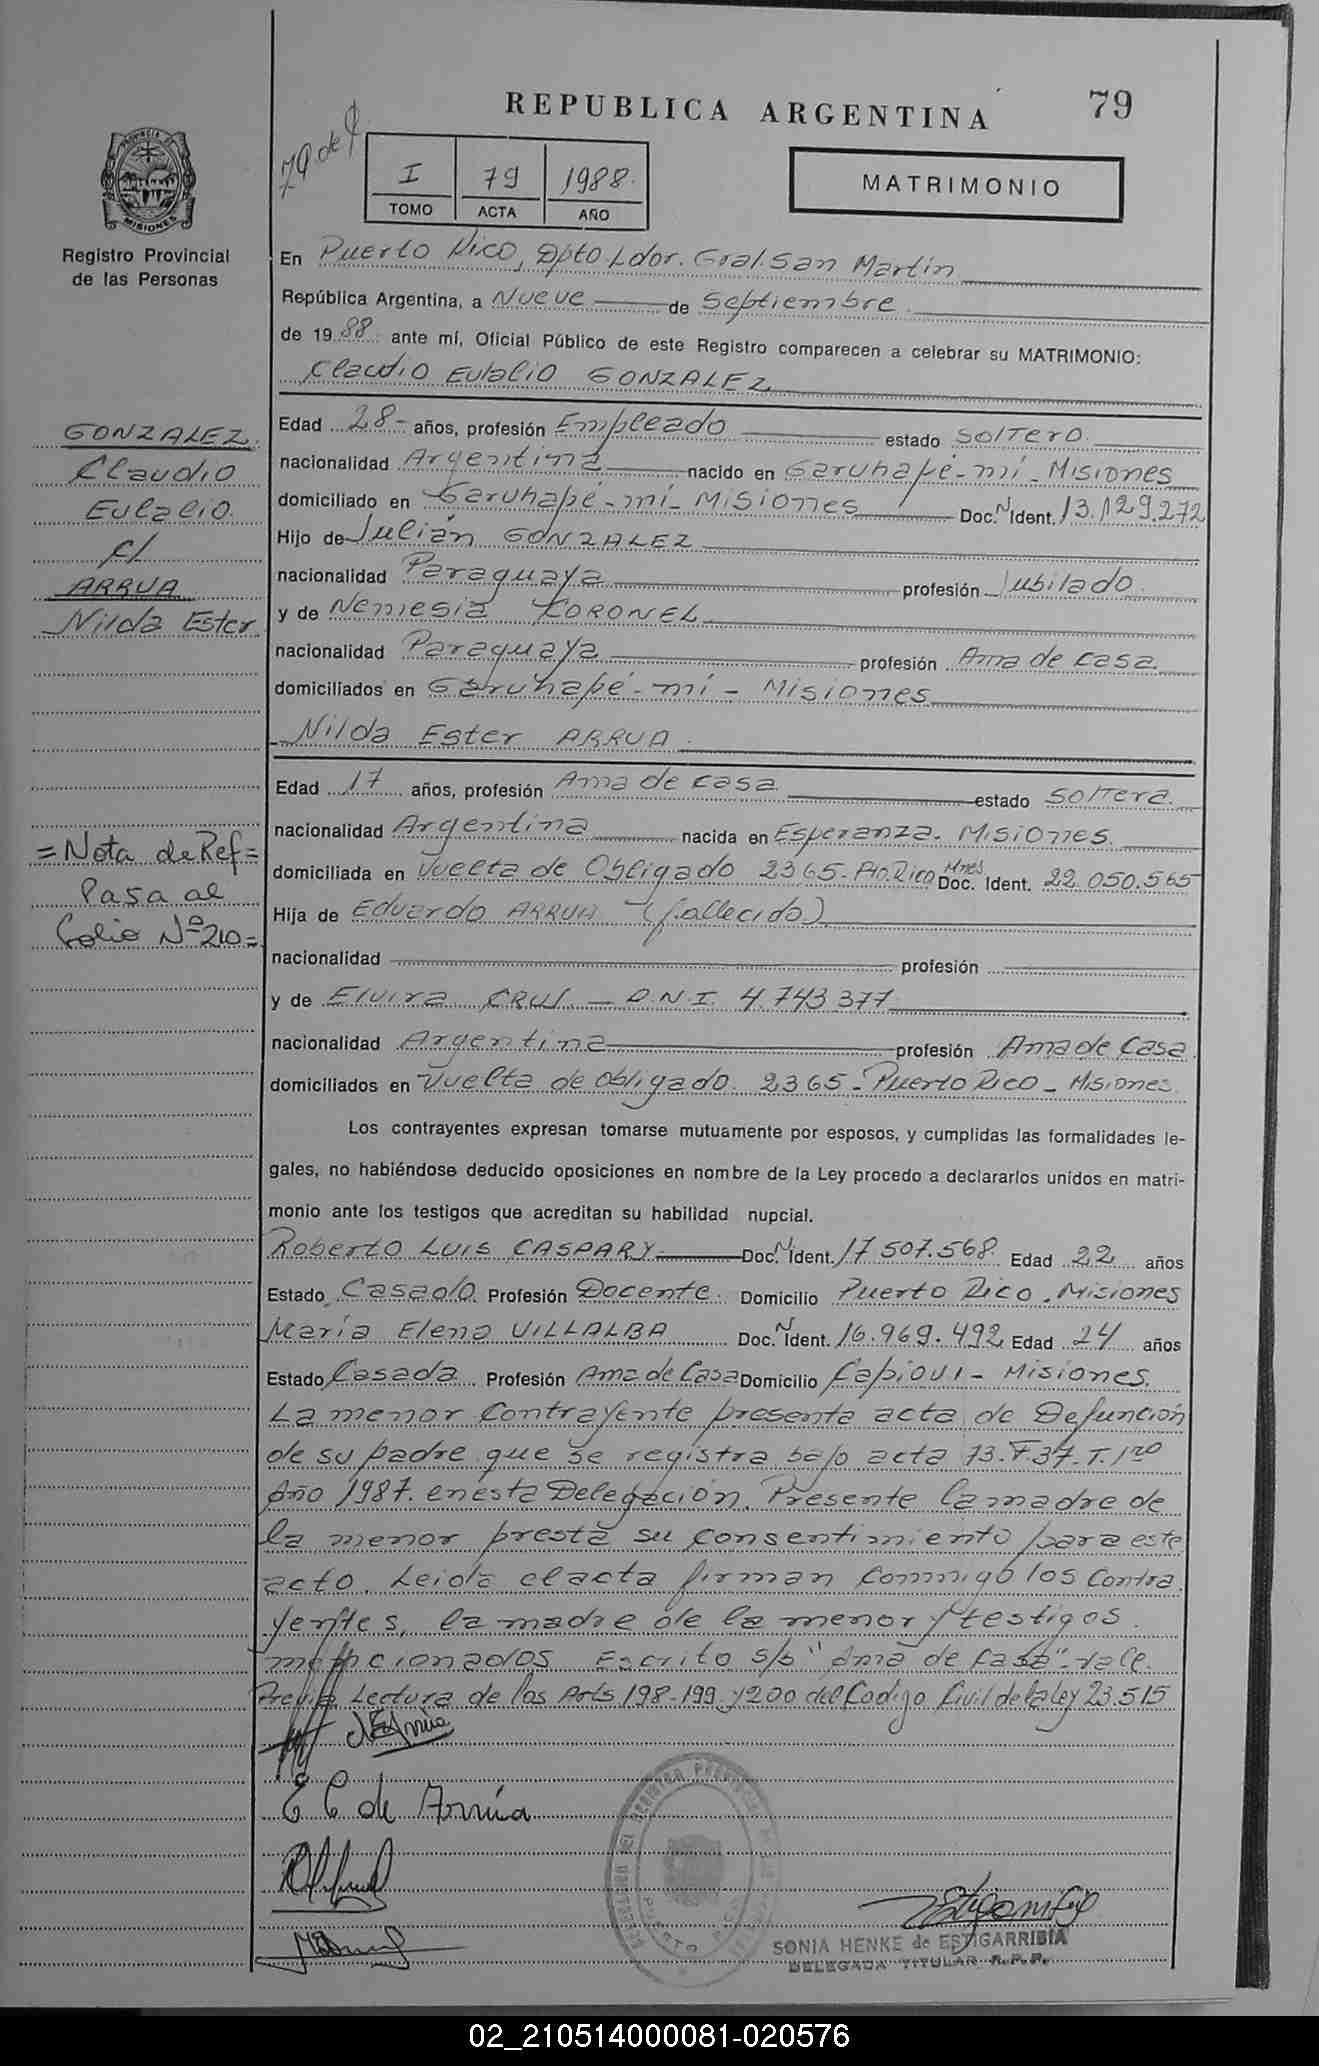 REPUBLICA ARGENTINA 79
PROVINCIA DE MISIONES
Registro Provincial
de las Personas
79 de
I 79 1988.
TOMO ACTA AÑO
MATRIMONIO
En Puerto Rico, Dpto. Ldor. Gral. San Martin
República Argentina, a Nueve de Septiembre
de 1988 ante mí, Oficial Público de este Registro comparecen a celebrar su MATRIMONIO:
Claudio Eulalio GONZALEZ
GONZALEZ
Claudio
Eulalio
c/
ARRUA
Nilda Ester
Edad 28- años, profesión Empleado estado soltero
nacionalidad Argentina nacido en Garuhapé-mí-Misiones
domiciliado en Garuhapé-mí-Misiones Doc. N Ident. 13.129.272
Hijo de Julián GONZALEZ
nacionalidad Paraguaya profesión Jubilado
y de Nemesia CORONEL
nacionalidad Paraguaya profesión Ama de casa
domiciliados en Garuhapé-mí-Misiones
Nilda Ester ARRUA
Edad 17 años, profesión Ama de casa estado soltera
nacionalidad Argentina nacida en Esperanza. Misiones.
domiciliada en Vuelta de Obligado 2365-Pto.Rico Mnes Doc. Ident. 22.050.565
Hija de Eduardo ARRUA (fallecido)
nacionalidad profesión
y de Elvira D.N.I. 4.743.377
nacionalidad Argentina profesión Ama de Casa
domiciliados en Vuelta de Obligado 2365-Puerto Rico-Misiones.
=Nota de Ref=
Pasa al
Folio Nº 210=
Los contrayentes expresan tomarse mutuamente por esposos, y cumplidas las formalidades le-
gales, no habiéndose deducido oposiciones en nombre de la Ley procedo a declararlos unidos en matri-
monio ante los testigos que acreditan su habilidad nupcial.
Roberto LUIS CASPARY Doc. N Ident. 17.507.568 Edad 22 años
Estado Casado Profesión Docente. Domicilio Puerto Rico. Misiones
María Elena VILLALBA Doc. N Ident. 16.969.492 Edad 24 años
Estado Casada Profesión Ama de Casa Domicilio Capioui-Misiones
La menor contrayente presenta acta de Defunción
de su padre que se registra bajo acta 73.F.37.T.1ro
Año 1987. en esta Delegación. Presente la madre de
la menor presta su consentimiento para este
acto. Leída el acta firman conmigo los Contra
yentes, la madre de la menor y testigos
mencionados Escrito s/b "Ama de Casa"-vale.
Previa Lectura de los Arts 198-199 y 200 del Codigo Civil de la Ley 23.515
E C de Arrúa
SONIA HENKE de ESTIGARRIBIA
DELEGADA TITULAR R.P.P.
02_210514000081-020576